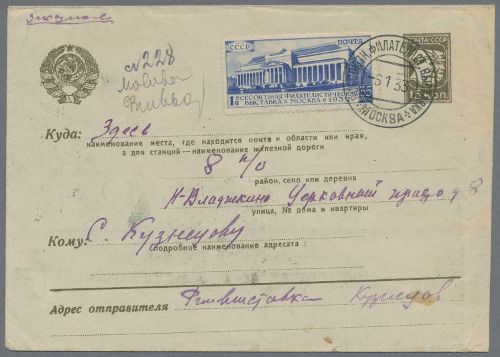 заказное
№ 228
Москва
СССР ПОЧТА
ВСЕСОЮЗНАЯ ФИЛАТЕЛИСТИЧЕСКАЯ
ВЫСТАВКА • МОСКВА • 1932
35
ФИЛАТЕЛИ
-6 1 33
МОСКВА
ПОЧТА СССР
15 КОП.
Куда: Здесь
наименование места, где находится почта и области или края,
а для станций—наименование железной дороги
8 п/о
район, село или деревня
Н-Владыкино Церковный проезд д 8
улица, № дома и квартиры
Кому: С. Кузнецову
подробное наименование адресата
Адрес отправителя Филвыставка Кузнецов